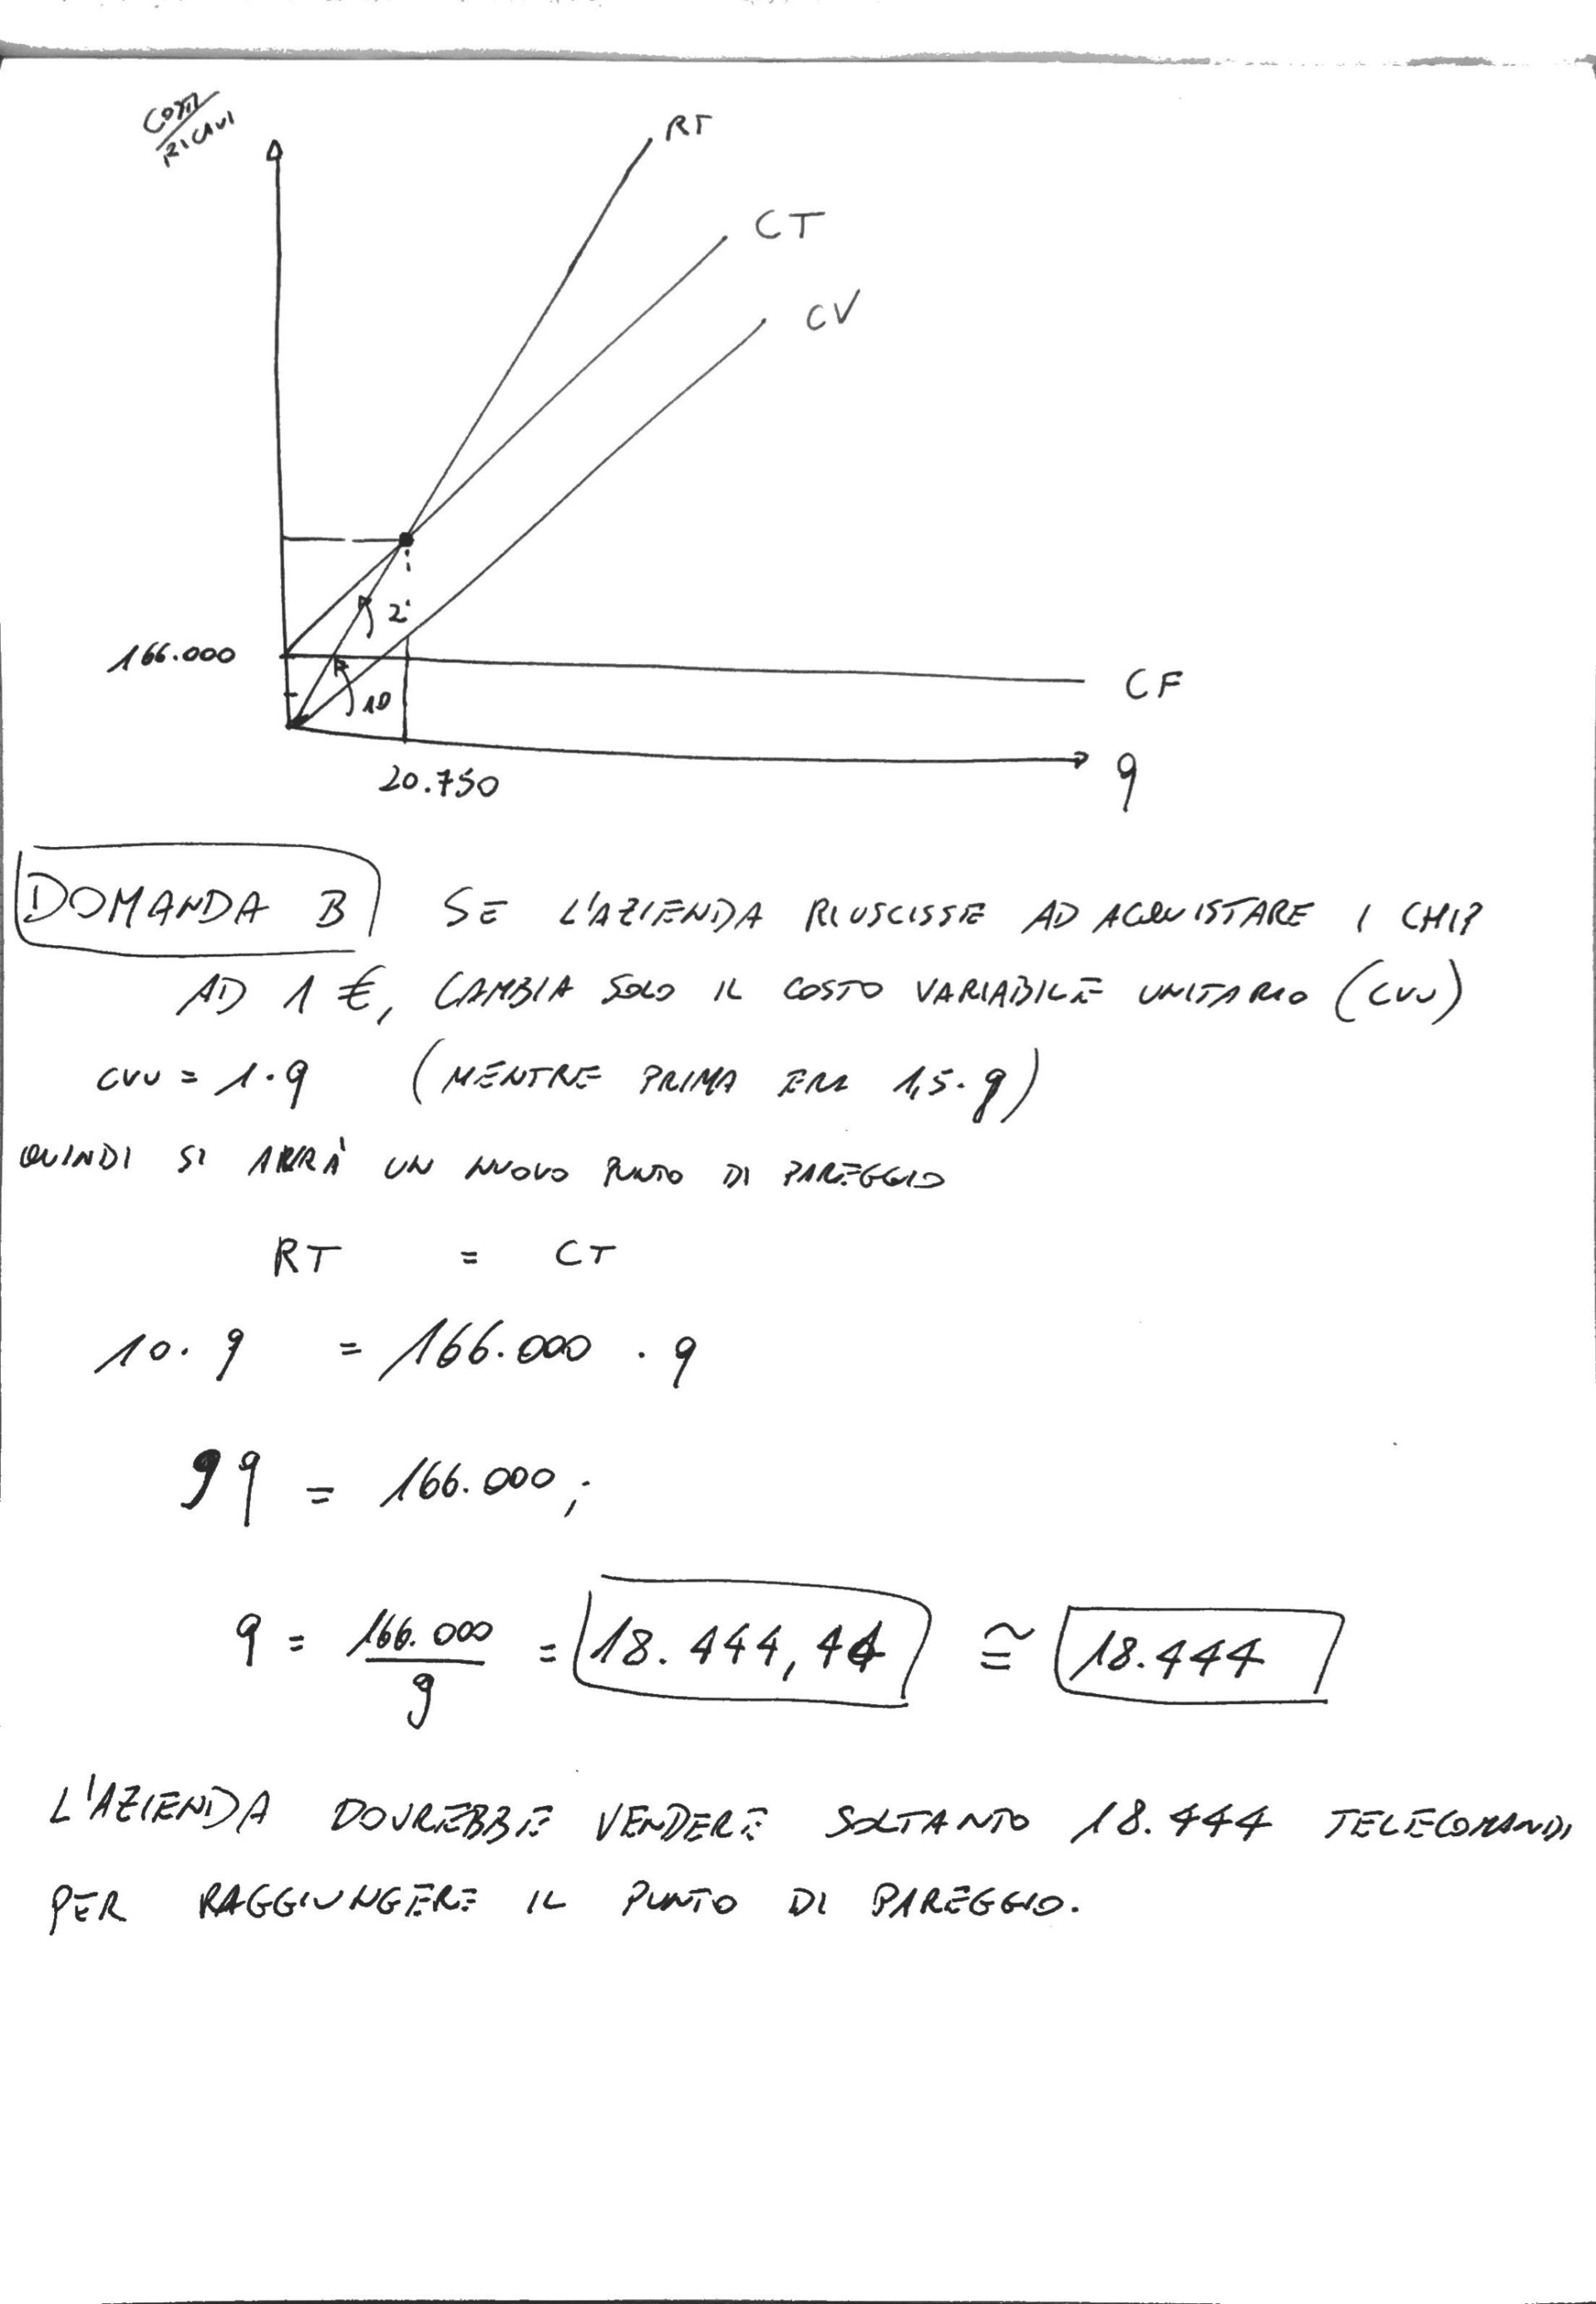 COSTI
RICAVI
RT
CT
CV
2
166.000
10
CF
20.750
q
DOMANDA B SE L'AZIENDA RIUSCISSE AD ACQUISTARE I CHIP
AD 1 €, CAMBIA SOLO IL COSTO VARIABILE UNITARIO (CVU)
CVU = 1·q (MENTRE PRIMA ERA 1,5·q)
QUINDI SI AVRÀ UN NUOVO PUNTO DI PAREGGIO
RT = CT
10·q = 166.000 · q
9q = 166.000;
q = 166.000/9 = 18.444,44 ≅ 18.444
L'AZIENDA DOVREBBE VENDERE SOLTANTO 18.444 TELECOMANDI
PER RAGGIUNGERE IL PUNTO DI PAREGGIO.